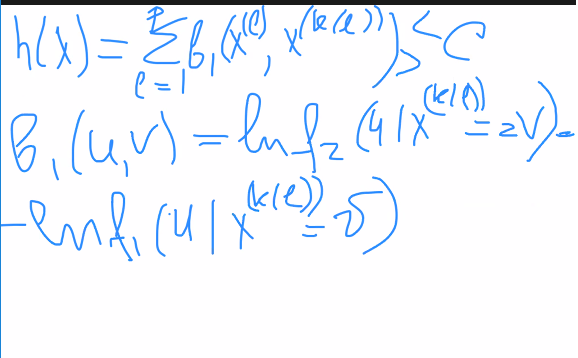 h(x) = Σ_{l=1}^{p} b_1(x^{(l)}, x^{(k(l))}) ≶ C
b_1(u, v) = ln f_2 (u | x^{(k(l))} = v) -
- ln f_1 (u | x^{(k(l))} = v)